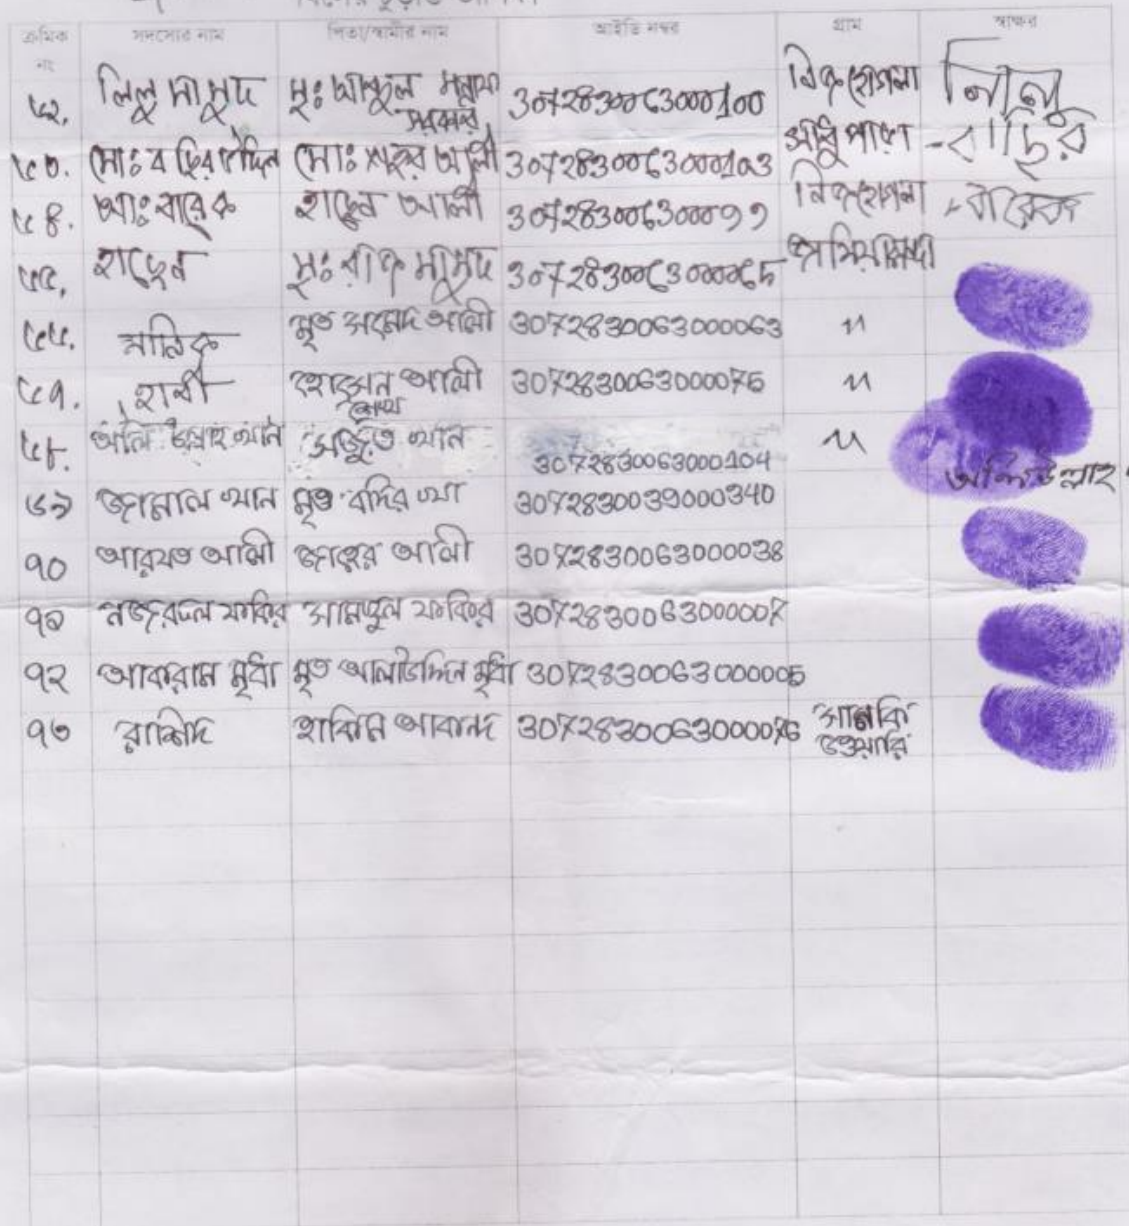 ক্রমিক নং সদস্যের নাম পিতা/স্বামীর নাম আইডি নম্বর গ্রাম স্বাক্ষর
৬২. লিলু মামুদ মৃঃ আব্দুল মন্নাফ সরকার 3072830063000100 লিলু
৬৩. মোঃ বছির উদ্দিন মোঃ জহুর আলী 3072830063000103 সাধুপাড়া বাছির
৬৪. আঃ বারেক হাছেন আলী 3072830063000099 বারেক
৬৫. হাছেন মৃঃ রফি মামুদ 3072830063000065
৬৬. মালিক মৃত আহমদ আলী 3072830063000063 〃
৬৭. হাবী হোসেন আলী শেখ 3072830063000075 〃
৬৮. অলি উল্লাহ খান খান 3072830063000104 〃 অলিউল্লাহ
৬৯ জামাল খান মৃত বদির খা 3072830039000340
৭০ আরযত আলী জাব্বের আলী 3072830063000038
৭১ নজরুল ফকির সামছুল ফকির 3072830063000007
৭২ আকরাম মৃধা মৃত আলাউদ্দিন মৃধা 3072830063000005
৭৩ রাশিদ হাকিম আকান্দ 3072830063000076 সানকি